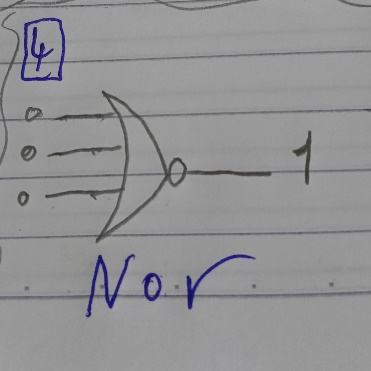 4
0
0
0
1
Nor